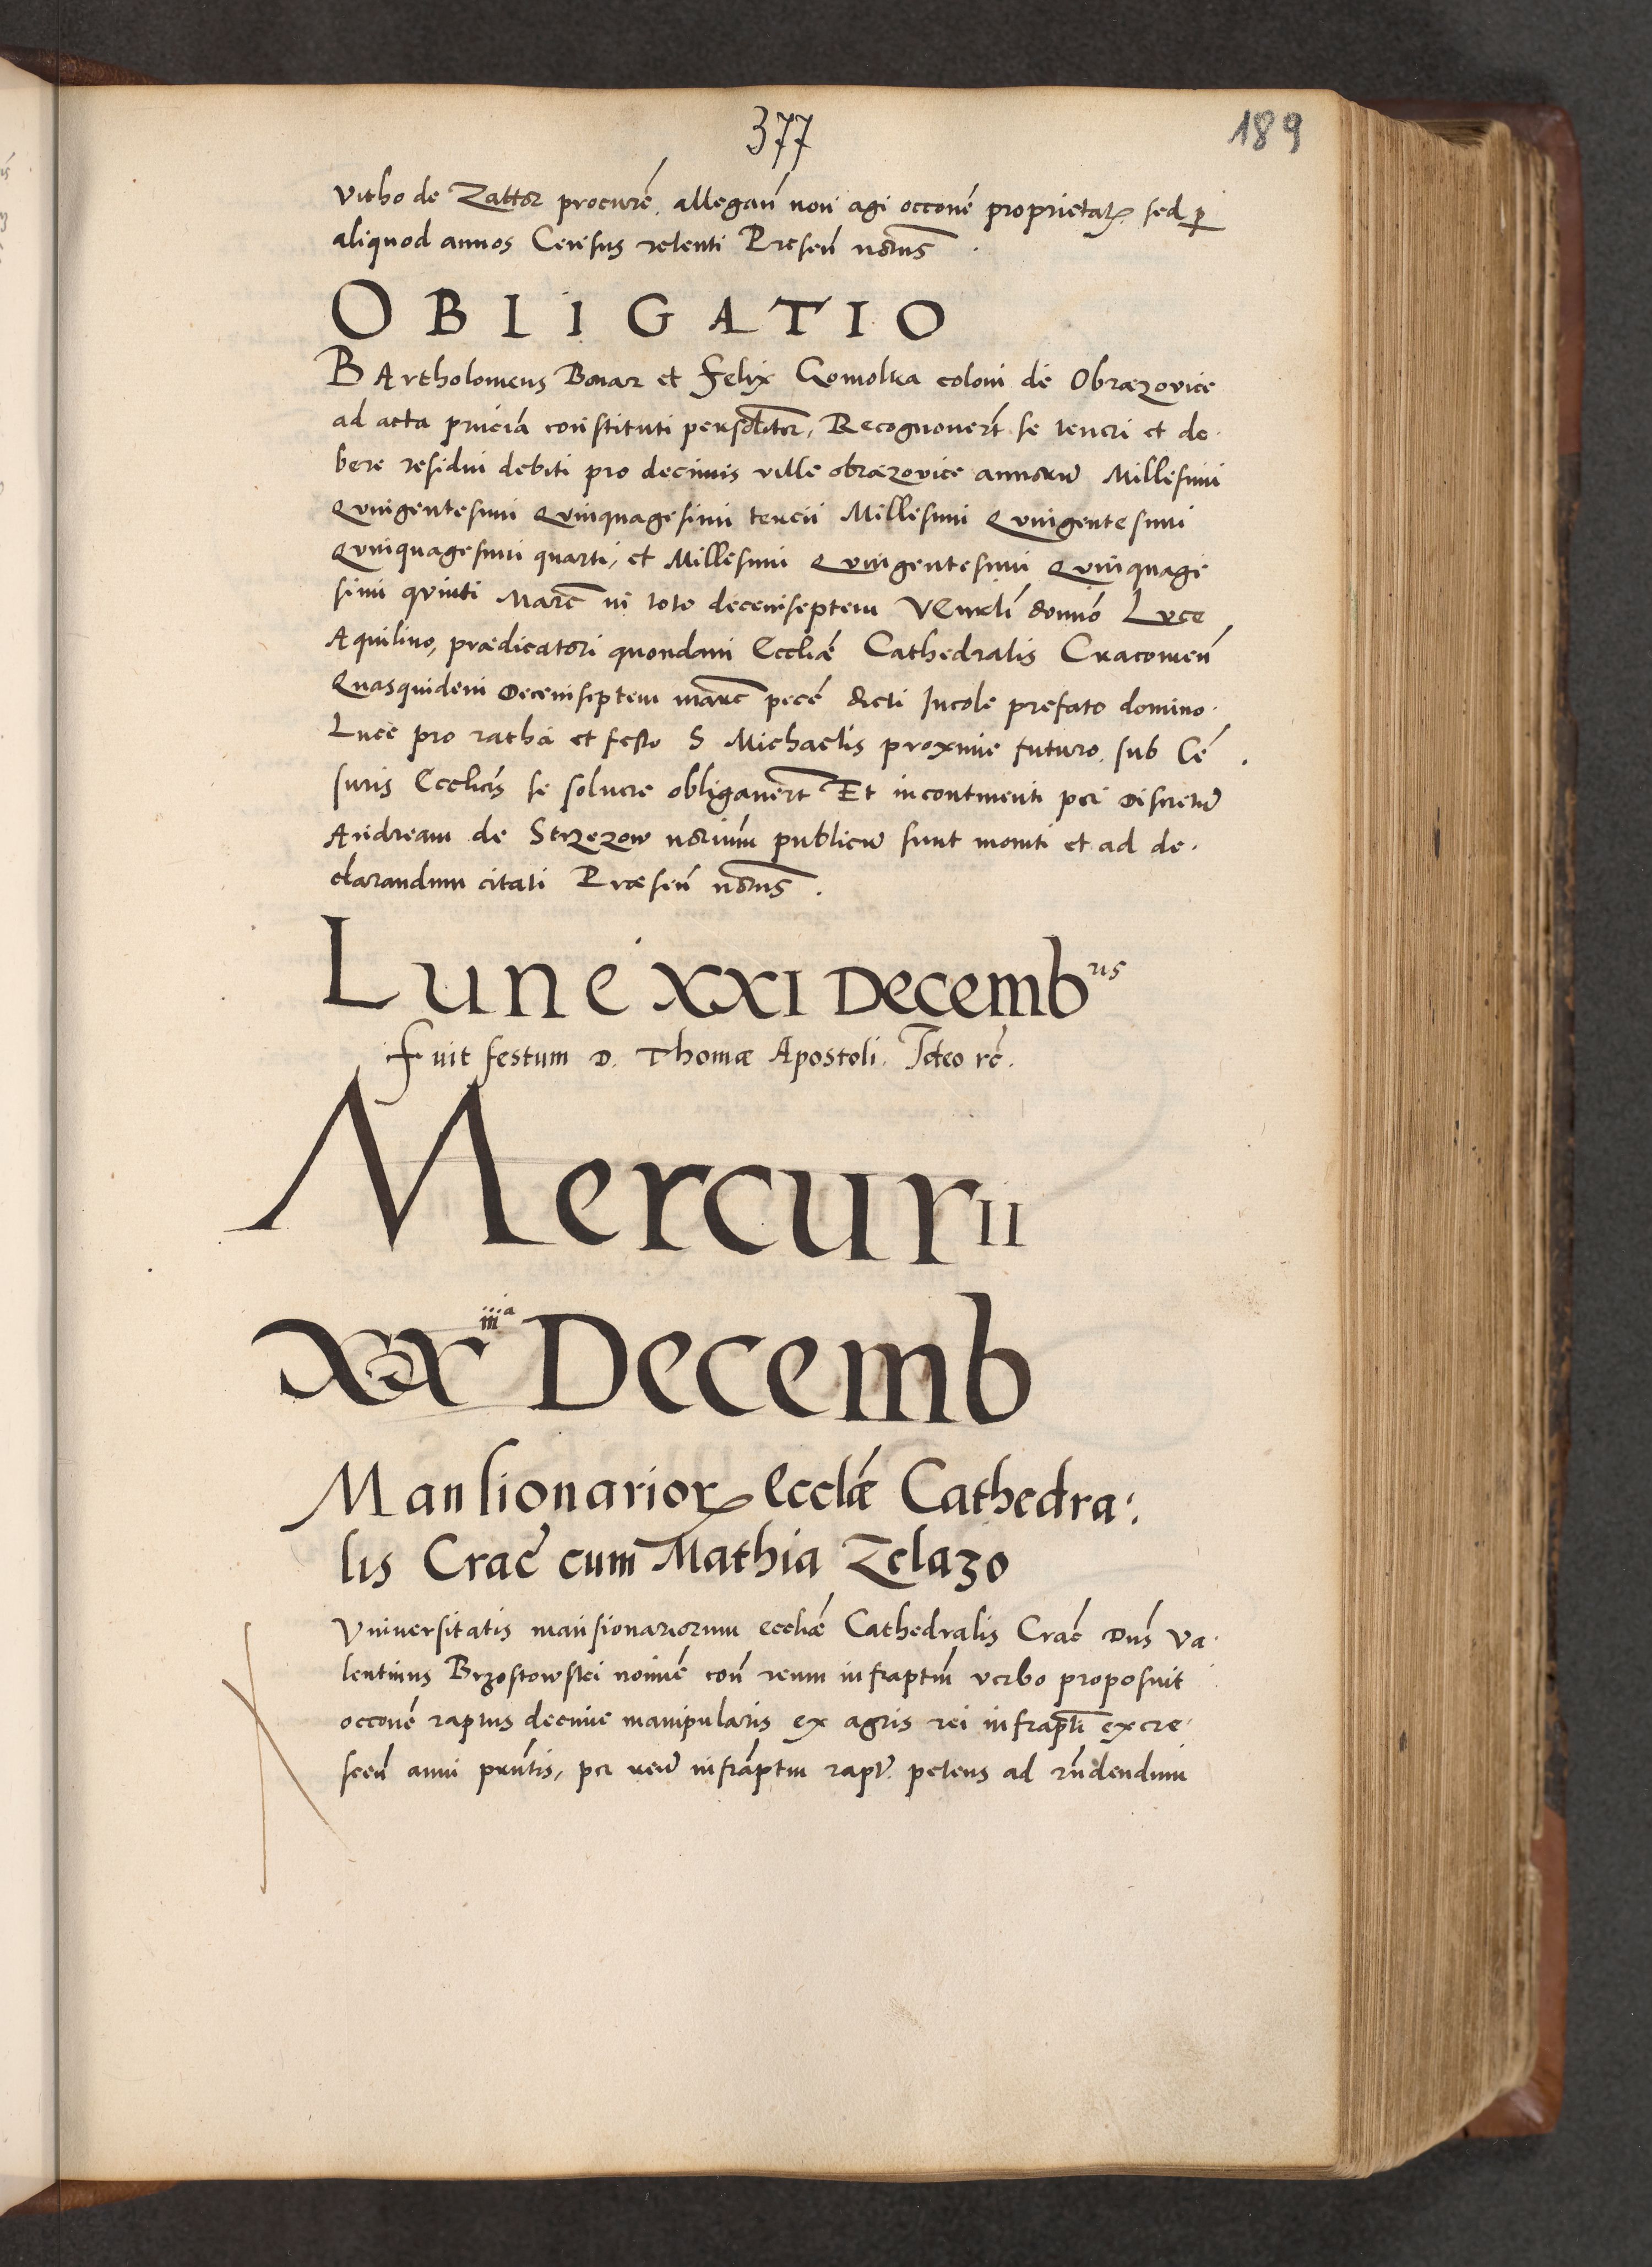 377
189
Vitho de Zattor procurē. allegan̄ non agi occonē proprietatꝭ sed ꝑ
aliquod annos Census retenti Presen̄ notrijs.
OBLIGATIO
BArtholomeus Bonar et Felix Gomolka coloni de Obrazovice
ad acta pn̄cia constituti personlitēr, Recognovert̄ se teneri et de-
bere residui debiti pro decimis ville obrazovice annorū Millesimi
Quingentesimi Quinquagesimi tercii Millesimi Quingentesimi
Quinquagesimi quarti, et Millesimi Quingentesimi Quinquage
simi quinti Marc̄ in toto decemseptem Vendl̄i domn̄o Luce
Aquilino, prædicatori quondam Eccliæ Cathedralis Cracovien̄
Quasquidem Decemseptem marc̄ pecē dicti Incole prefato domino
Luce pro rathā et festo S Michaelis proxime futuro. sub Cē
suris Ecclicīs se solvere obligavert̄ Et incontinenti per Discretū
Andream de Strzezow notrium publicū sunt moniti et ad de-
clarandum citati Præsen̄ notrijs.
Lune XXI Decembris
Fuit festum D. Thomæ Apostoli. Ideo rc̄.
Mercurii
XXiiia Decemb
Mansionarioꝝ Eccl̄æ Cathedra:
lis Crac̄ cum Mathia Zelazo
Universitatis mansionariorum eccliæ Cathedralis Crac̄ Dns̄ Va-
lentinus Brzostowski noīnē con̄ reum infrāptm̄ verbo proposuit
occonē raptus decime manipularis ex agris rei infrāpti excre-
scen̄ anni pn̄tis, per reū infrāptm rapt̄. petens ad rn̄dendum